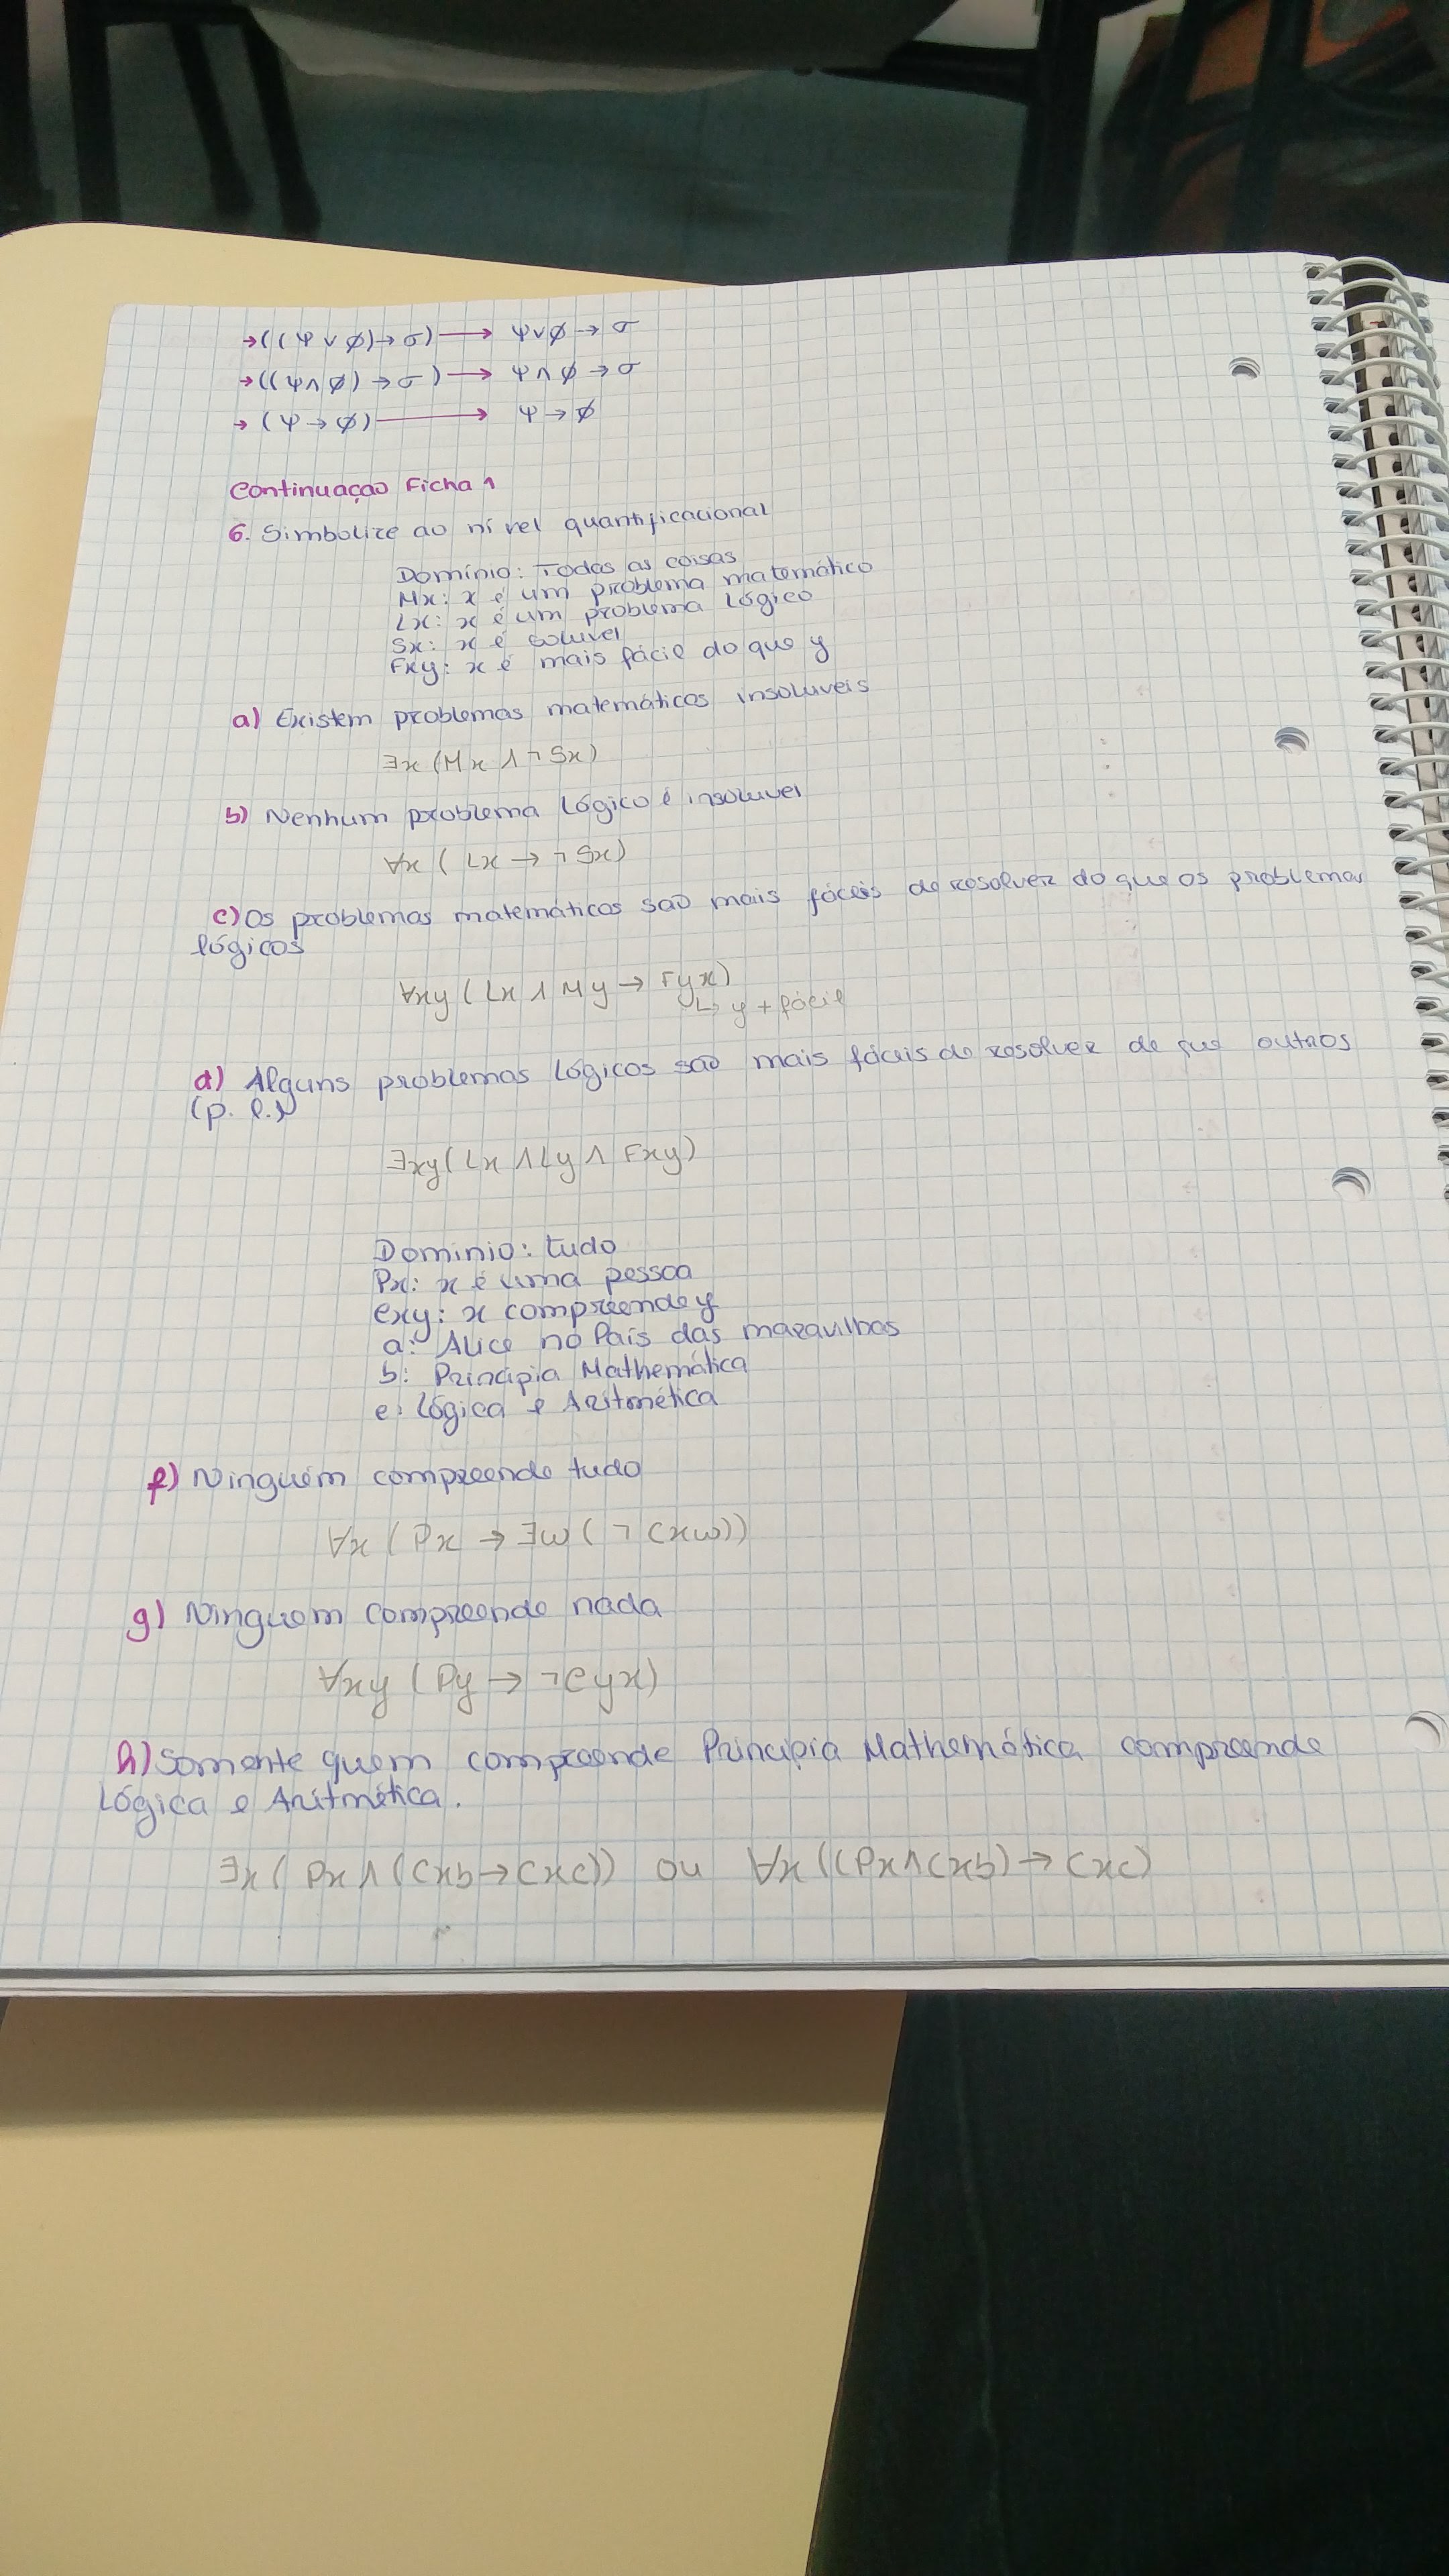 →((Ψ ∨ ϕ)→σ) ⟶ Ψ∨ϕ→σ
→((Ψ∧ϕ)→σ) ⟶ Ψ∧ϕ→σ
→(Ψ→ϕ) ⟶ Ψ→ϕ
Continuação Ficha 1
6. Simbolize ao nível quantificacional
Domínio: Todas as coisas
Mx: x é um problema matemático
Lx: x é um problema lógico
Sx: x é soluvel
Fxy: x é mais fácil do que y
a) Existem problemas matemáticos insoluveis
∃x(Mx ∧ ¬Sx)
b) Nenhum problema lógico é insoluvel
∀x (Lx → ¬Sx)
c) Os problemas matemáticos são mais fáceis de resolver do que os problemas
lógicos
∀xy (Lx ∧ My → Fyx)
↳ y + fácil
d) Alguns problemas lógicos são mais fáceis de resolver de que outros
(p. l.)
∃xy(Lx ∧ Ly ∧ Fxy)
Dominio: tudo
Px: x é uma pessoa
Cxy: x compreende y
a: Alice no País das maravilhas
b: Principia Mathemática
c: Lógica e Aritmética
f) Ninguém compreende tudo
∀x (Px → ∃w(¬Cxw))
g) Ninguem compreende nada
∀xy (Py → ¬Cyx)
h) Somente quem compreende Principia Mathemática compreende
Lógica e Aritmética.
∃x(Px∧(Cxb→Cxc)) ou ∀x((Px∧Cxb)→Cxc)